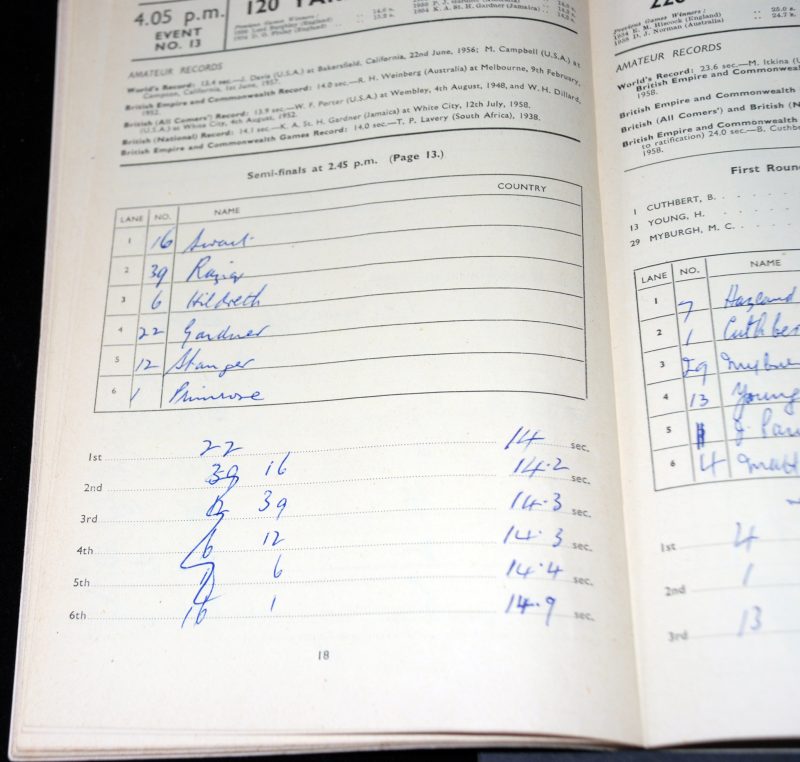 4.05 p.m.
EVENT
NO. 13
120
Previous Games Winners:
AMATEUR RECORDS
World's Record: 13.4 sec.—J. Davis (U.S.A.) at Bakersfield, California, 22nd June, 1956; M. Campbell (U.S.A.) at
Compton, California, 1st June, 1957.
British Empire and Commonwealth Record: 14.0 sec.—R. H. Weinberg (Australia) at Melbourne, 9th February,
1952.
British (All Comers') Record: 13.9 sec.—W. F. Porter (U.S.A.) at Wembley, 4th August, 1948, and W. H. Dillard,
(U.S.A.) at White City, 4th August, 1952.
British (National) Record: 14.1 sec.—K. A. St. H. Gardner (Jamaica) at White City, 12th July, 1958.
British Empire and Commonwealth Games Record: 14.0 sec.—T. P. Lavery (South Africa), 1938.
Semi-finals at 2.45 p.m. (Page 13.)
LANE NO. NAME COUNTRY
1 16 Swart
2 39 Raziq
3 6 Hildreth
4 22 Gardner
5 12 Stanger
6 1 Primrose
1st 22 14 sec.
2nd 39 16 14.2 sec.
3rd 39 14.3 sec.
4th 6 12 14.3 sec.
5th 1 6 14.4 sec.
6th 16 1 14.9 sec.
18
220
Previous Games Winners:
1934 E. M. Hiscock (England) 25.0 s.
1938 D. J. Norman (Australia) 24.7 s.
AMATEUR RECORDS
World's Record: 23.6 sec.—M. Itkina
British Empire and Commonwealth
1958.
British Empire and Commonwealth
British (All Comers') and British
British Empire and Commonwealth
to ratification) 24.0 sec.—B.
1958.
First
1 CUTHBERT, B.
13 YOUNG, H.
29 MYBURGH, M. C.
LANE NO. NAME
1 7
2 1
3 29
4 13 Young
5
6 4
1st 4
2nd 1
3rd 13